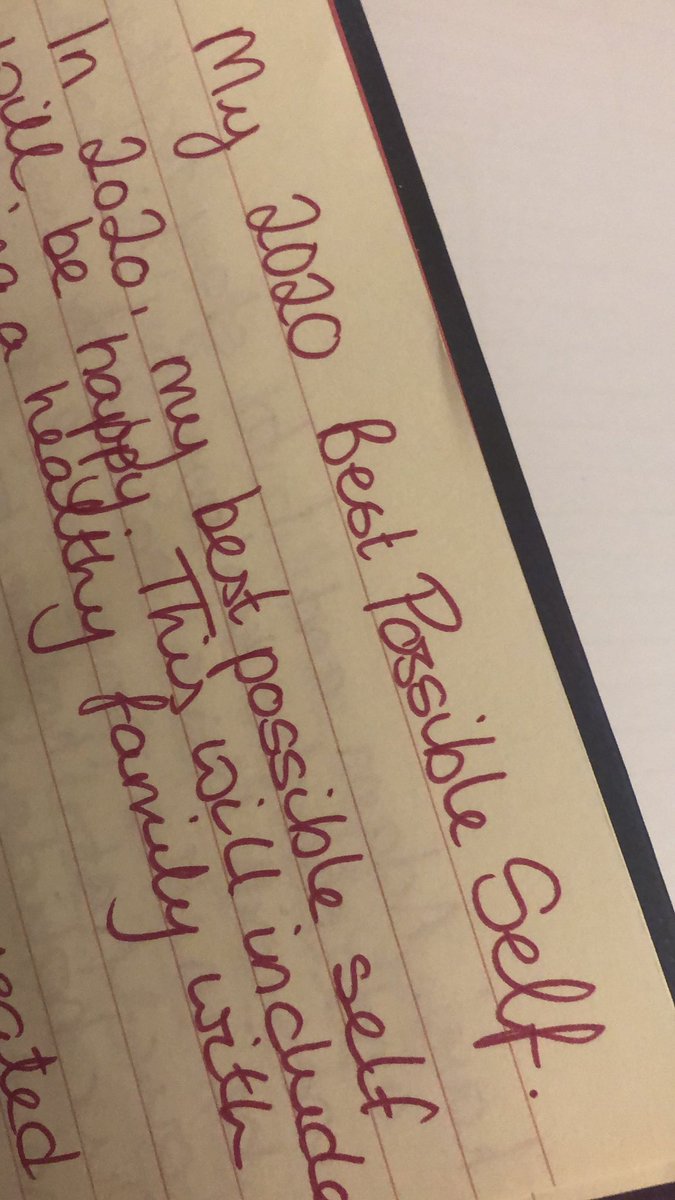 My 2020 Best Possible Self.
In 2020, my best possible self
will be happy. This will include
a healthy family with